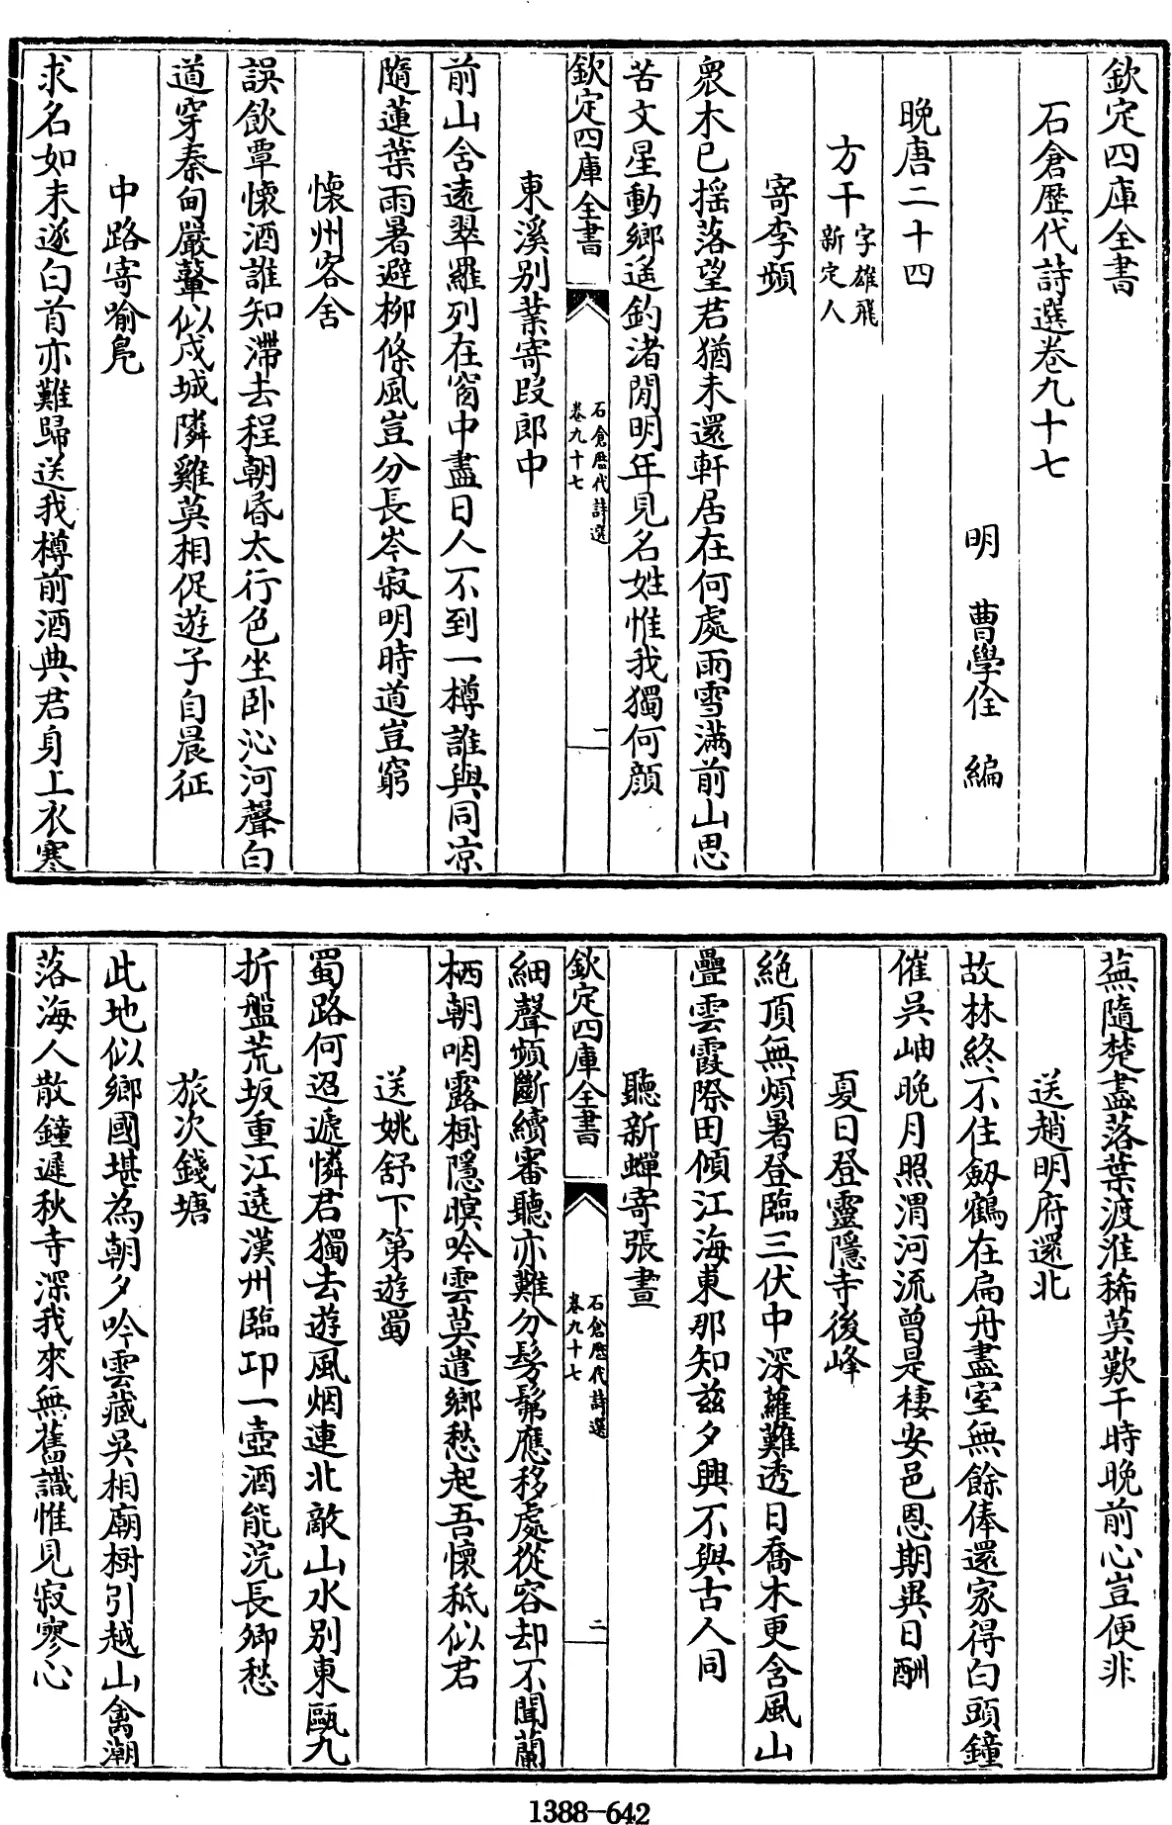 欽定四庫全書
石倉歷代詩選卷九十七
明 曹學佺 編
晚唐二十四
方干 字雄飛
新定人
寄李頻
衆木已揺落望君猶未還軒居在何處雨雪滿前山思
苦文星動鄉遙釣渚閒明年見名姓惟我獨何顔
欽定四庫全書
石倉歷代詩選
卷九十七
一
東溪別業寄段郎中
前山含遠翠羅列在窗中盡日人不到一樽誰與同凉
隨蓮葉雨暑避柳條風豈分長岑寂明時道豈窮
懷州客舍
誤飲覃懷酒誰知滯去程朝昏太行色坐卧沁河聲白
道穿秦甸嚴鼙似戍城隣雞莫相促遊子自晨征
中路寄喻鳧
求名如未遂白首亦難歸送我樽前酒典君身上衣寒
蕪隨楚盡落葉渡淮稀莫歎干時晚前心豈便非
送趙明府還北
故林終不住劔鶴在扁舟盡室無餘俸還家得白頭鐘
催吳岫晚月照渭河流曾是棲安邑恩期異日酬
夏日登靈隱寺後峰
絶頂無煩暑登臨三伏中深蘿難透日喬木更含風山
疊雲霞際田傾江海東那知兹夕興不與古人同
聽新蟬寄張晝
細聲頻斷續審聽亦難分髣髴應移處從容却不聞蘭
栖朝咽露樹隱暝吟雲莫遣鄉愁起吾懷秪似君
欽定四庫全書
石倉歷代詩選
卷九十七
二
送姚舒下第遊蜀
蜀路何迢遞憐君獨去遊風烟連北敵山水別東甌九
折盤荒坂重江遶漢州臨卭一壺酒能浣長卿愁
旅次錢塘
此地似鄉國堪為朝夕吟雲藏吳相廟樹引越山禽潮
落海人散鐘遲秋寺深我來無舊識惟見寂寥心
1388-642